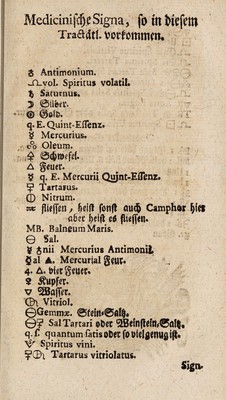 Medicinische Signa, so in diesem
Tractätl. vorkommen.
♁ Antimonium.
♎vol. Spiritus volatil.
♄ Saturnus.
☽ Silber.
☉ Gold.
q. E. Quint-Essenz.
☿ Mercurius.
Oleum.
🜍 Schwefel.
△ Feuer.
☿ q. E. Mercurii Quint-Essenz.
Tartarus.
⦶ Nitrum.
♒ fliessen, heist sonst auch Camphor hier
aber heist es fliessen.
MB. Balneum Maris.
⊖ Sal.
☿ ♁nii Mercurius Antimonii.
☿al △. Mercurial Feur.
4. △. vier Feuer.
♀ Kupfer.
▽ Wasser.
Vitriol.
⊖Gemmæ. Stein-Saltz.
⊖ Sal Tartari oder Weinstein-Saltz.
q. s. quantum satis oder so viel genug ist.
Spiritus vini.
Tartarus vitriolatus.
Sign.